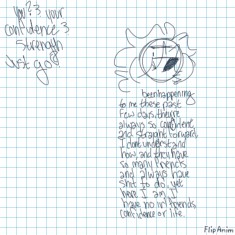 you? :3 your
confidence :3
strength
Just go
been happening
to me these past
few days. they're
always so confident,
and straight forward,
I dont understand
how, and they have
so many friends
and always have
shit to do, yet
here I am. I
have no irl friends,
confidence or life.
FlipAnim